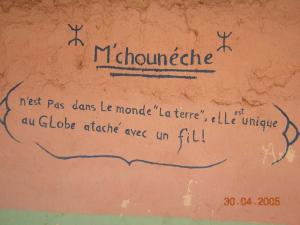 ⵣ M'chounéche ⵣ
n'est Pas dans Le monde "La terre", elle est unique
au GLobe ataché avec un fiL!
30.04.2005